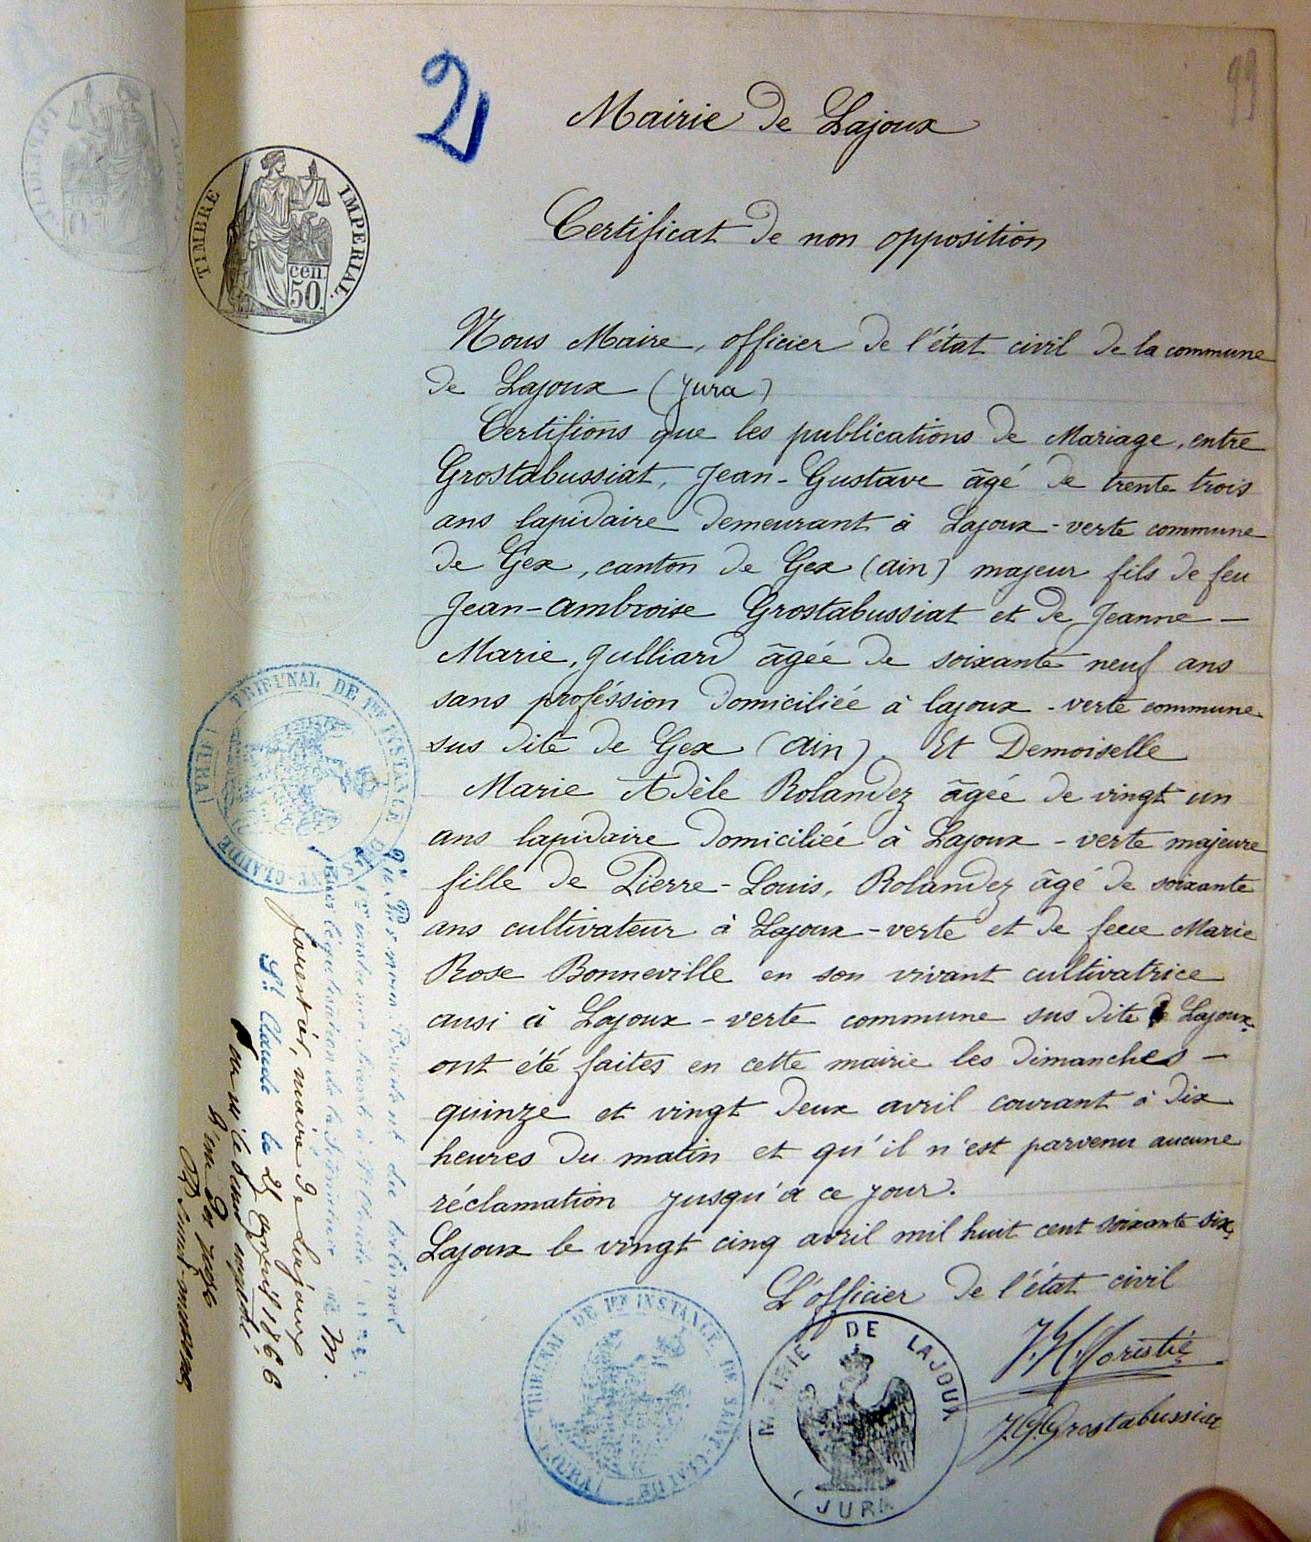 2
99
Mairie de Lajoux
Certificat de non opposition
TIMBRE IMPERIAL.
cen.
50
Nous Maire, officier de l'état civil de la commune
de Lajoux (Jura)
Certifions que les publications de Mariage, entre
Grostabussiat, Jean-Gustave âgé de trente trois
ans lapidaire demeurant à Lajoux-verte commune
de Gex, canton de Gex (ain) majeur fils de feu
Jean-ambroise Grostabussiat et de Jeanne-
Marie, Julliard âgée de soixante neuf ans
sans proféssion domiciliée à lajoux-verte commune
sus dite de Gex (ain) Et Demoiselle
Marie Adèle Rolandez âgée de vingt un
ans lapidaire domiciliée à Lajoux-verte majeure
fille de Pierre-Louis, Rolandez âgé de soixante
ans cultivateur à Lajoux-verte et de feue Marie
Rose Bonneville en son vivant cultivatrice
ausi à Lajoux-verte commune sus dite Lajoux.
ont été faites en cette mairie les dimanches-
quinze et vingt deux avril courant à dix
heures du matin et qu'il n'est parvenu aucune
réclamation jusqu'à ce jour.
Lajoux le vingt cinq avril mil huit cent soixante six.
L'officier de l'état civil
J. G. Grostabussiat
MAIRIE DE LAJOUX
(JURA)
TRIBUNAL DE 1re INSTANCE DE SAINT-CLAUDE
(JURA)
TRIBUNAL DE 1re INSTANCE DE SAINT-CLAUDE
(JURA)
Président du tribunal
légalisation de la signature de M.
maire de Lajoux
St Claude le 25 avril 1866